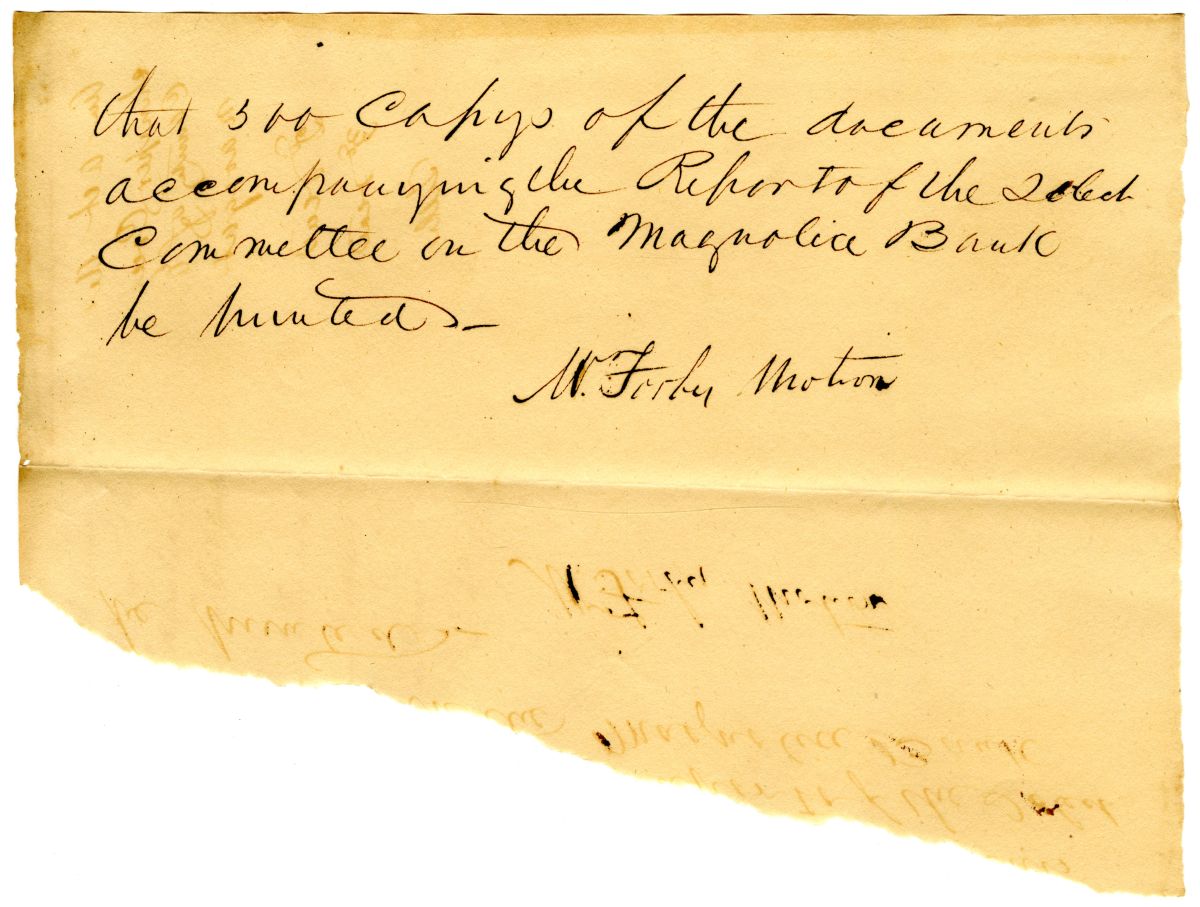 that 300 Copys of the documents
accompanying the Report of the Select
Committee on the Magnolia Bank
be printed—
Mr. Forby Motion